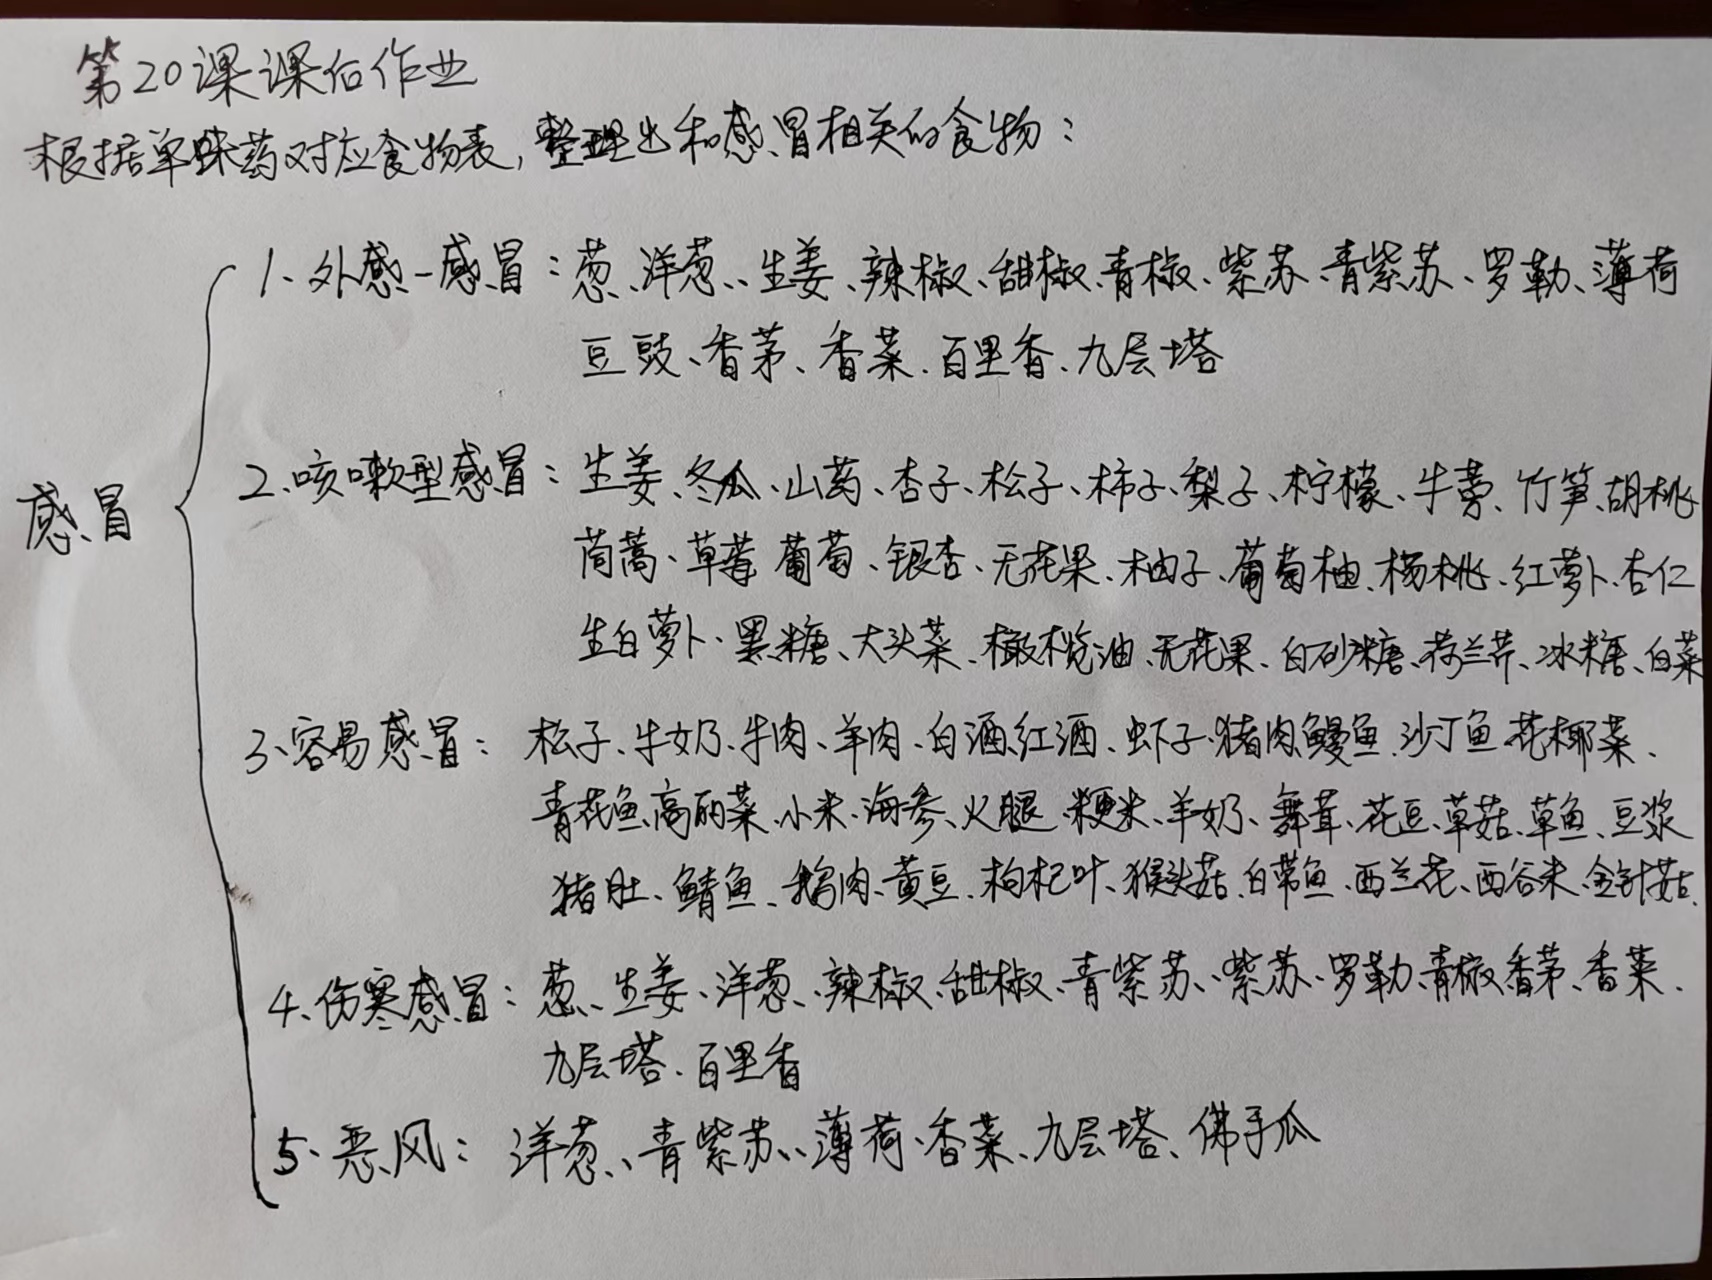 第20课课后作业
根据单味药对应食物表,整理出和感冒相关的食物:
感冒
1、外感-感冒:葱、洋葱、、生姜、辣椒、甜椒、青椒、紫苏、青紫苏、罗勒、薄荷
豆豉、香茅、香菜、百里香、九层塔
2、咳嗽型感冒:生姜、冬瓜、山药、杏子、松子、柿子、梨子、柠檬、牛蒡、竹笋、胡桃
茼蒿、草莓 葡萄、银杏、无花果、柚子、葡萄柚、杨桃、红萝卜、杏仁
生白萝卜、黑糖、大头菜、橄榄油、无花果、白砂糖、荷兰芹、冰糖、白菜
3、容易感冒:松子、牛奶、牛肉、羊肉、白酒、红酒、虾子、猪肉、鳗鱼、沙丁鱼、花椰菜、
青花鱼、高丽菜、小米、海参、火腿、粳米、羊奶、舞茸、花豆、草菇、草鱼、豆浆
猪肚、鲭鱼、鹅肉、黄豆、枸杞叶、猴头菇、白带鱼、西兰花、西谷米、金针菇、
4、伤寒感冒:葱、生姜、洋葱、辣椒、甜椒、青紫苏、紫苏、罗勒、青椒、香茅、香菜、
九层塔、百里香
5、恶风:洋葱、、青紫苏、、薄荷、香菜、九层塔、佛手瓜